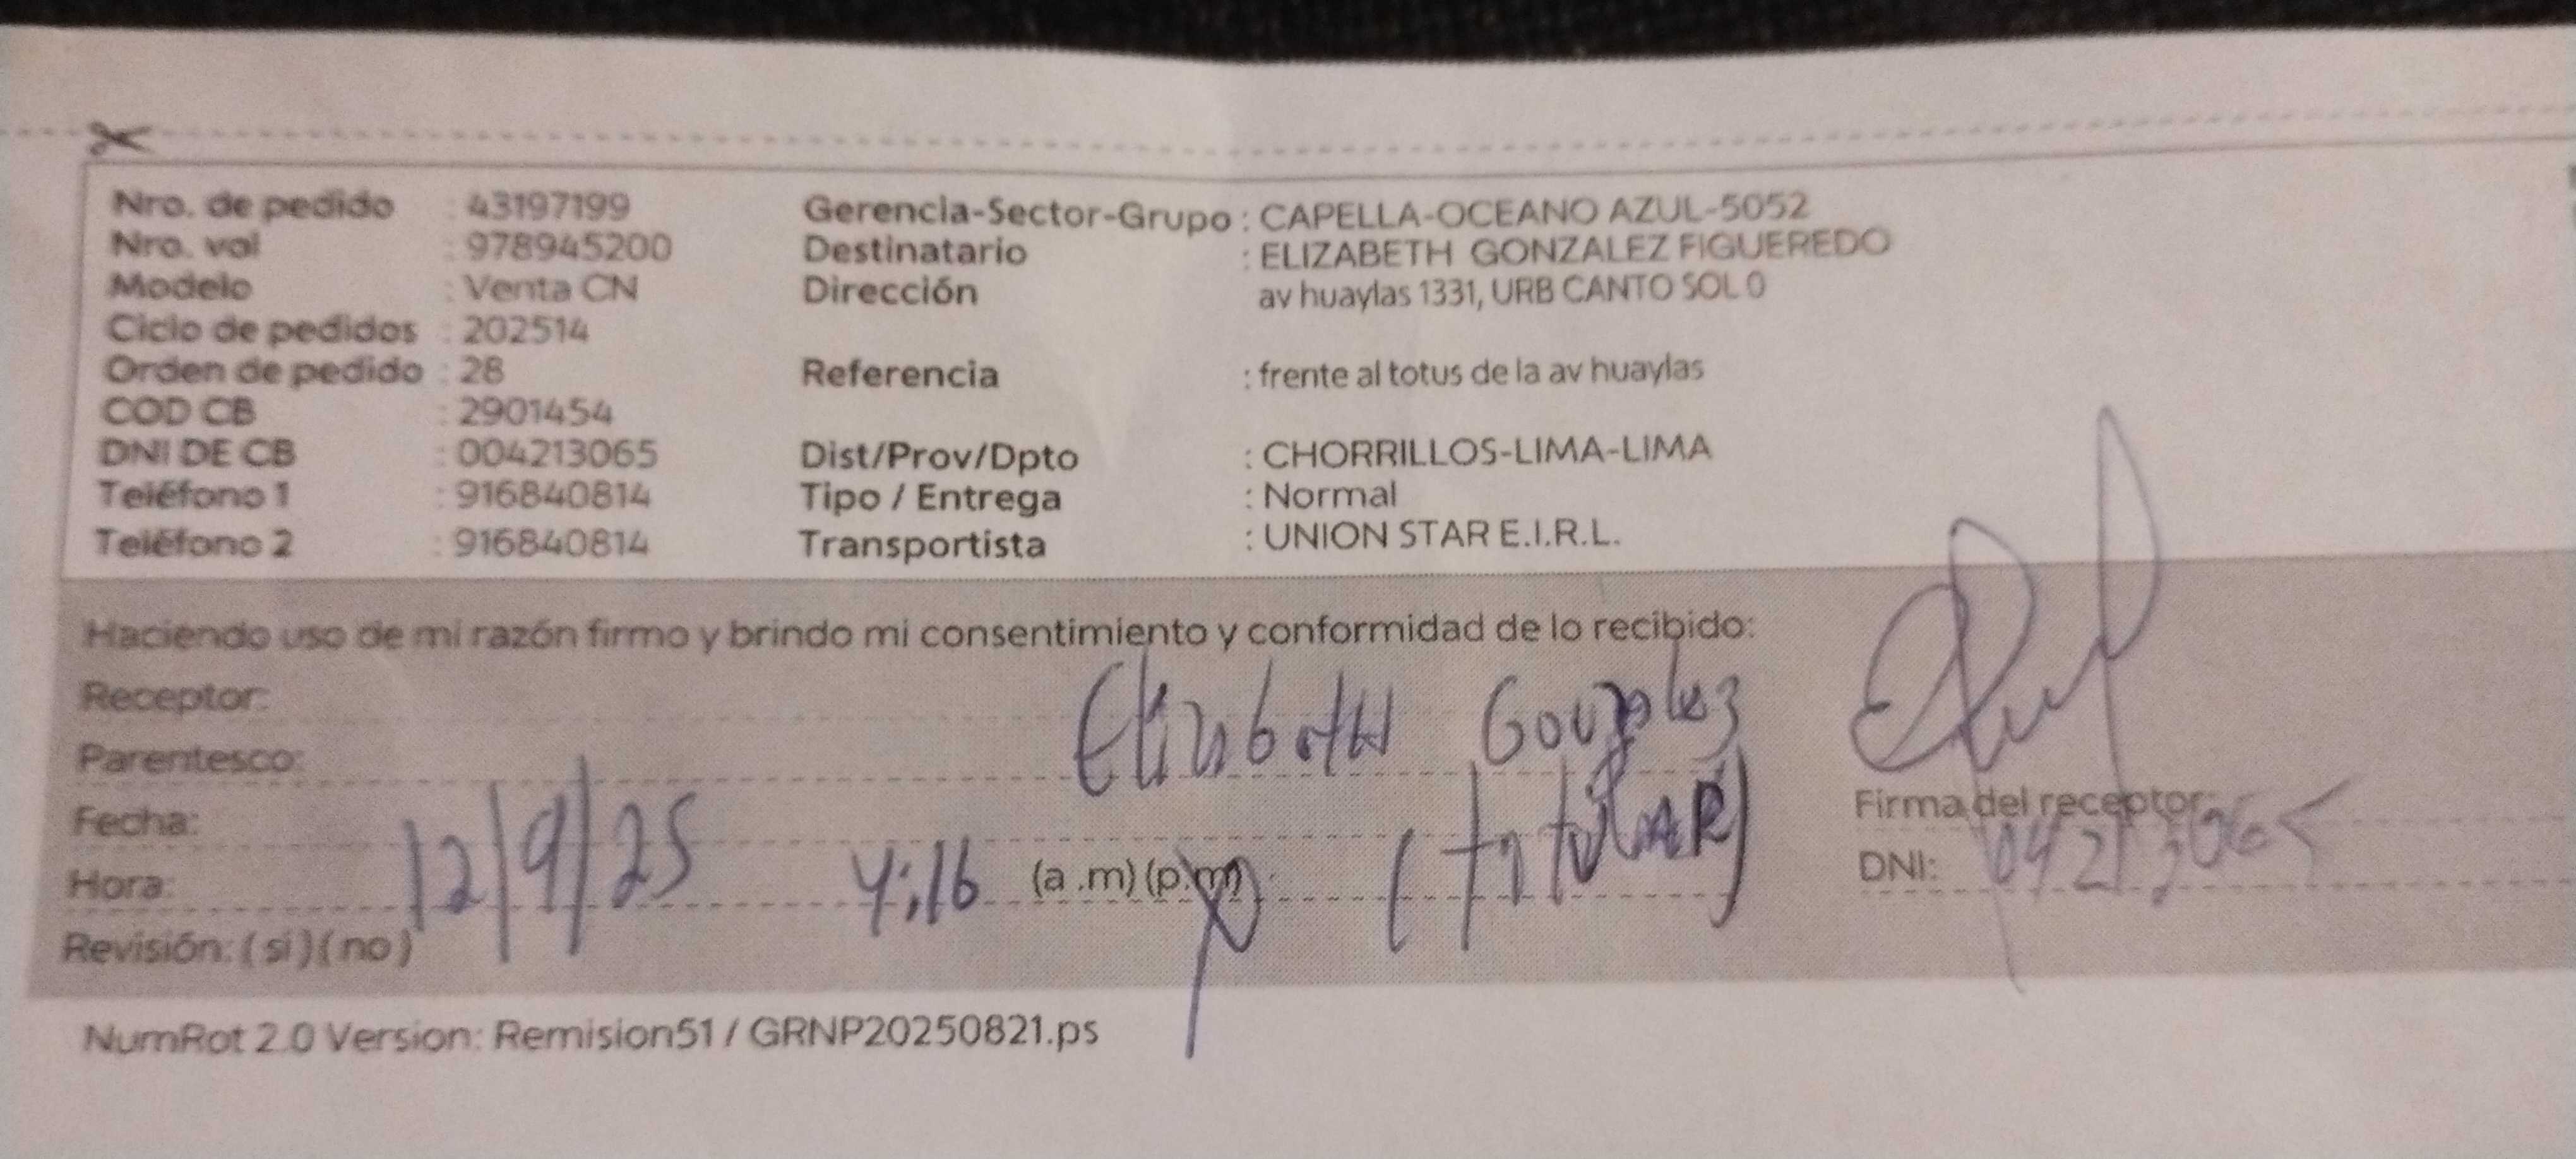 Nro. de pedido : 43197199
Nro. vol : 978945200
Modelo : Venta CN
Ciclo de pedidos : 202514
Orden de pedido : 28
COD CB : 2901454
DNI DE CB : 004213065
Teléfono 1 : 916840814
Teléfono 2 : 916840814
Gerencia-Sector-Grupo : CAPELLA-OCEANO AZUL-5052
Destinatario : ELIZABETH GONZALEZ FIGUEREDO
Dirección av huaylas 1331, URB CANTO SOL 0
Referencia : frente al totus de la av huaylas
Dist/Prov/Dpto : CHORRILLOS-LIMA-LIMA
Tipo / Entrega : Normal
Transportista : UNION STAR E.I.R.L.
Haciendo uso de mi razón firmo y brindo mi consentimiento y conformidad de lo recibido:
Receptor: Elizabeth Gonzalez
Parentesco: (titulAR)
Fecha: 12/9/25
Hora: 4:16 (a .m) (p.m)
Revisión: ( si ) ( no )
Firma del receptor:
DNI:
NumRot 2.0 Version: Remision51 / GRNP20250821.ps